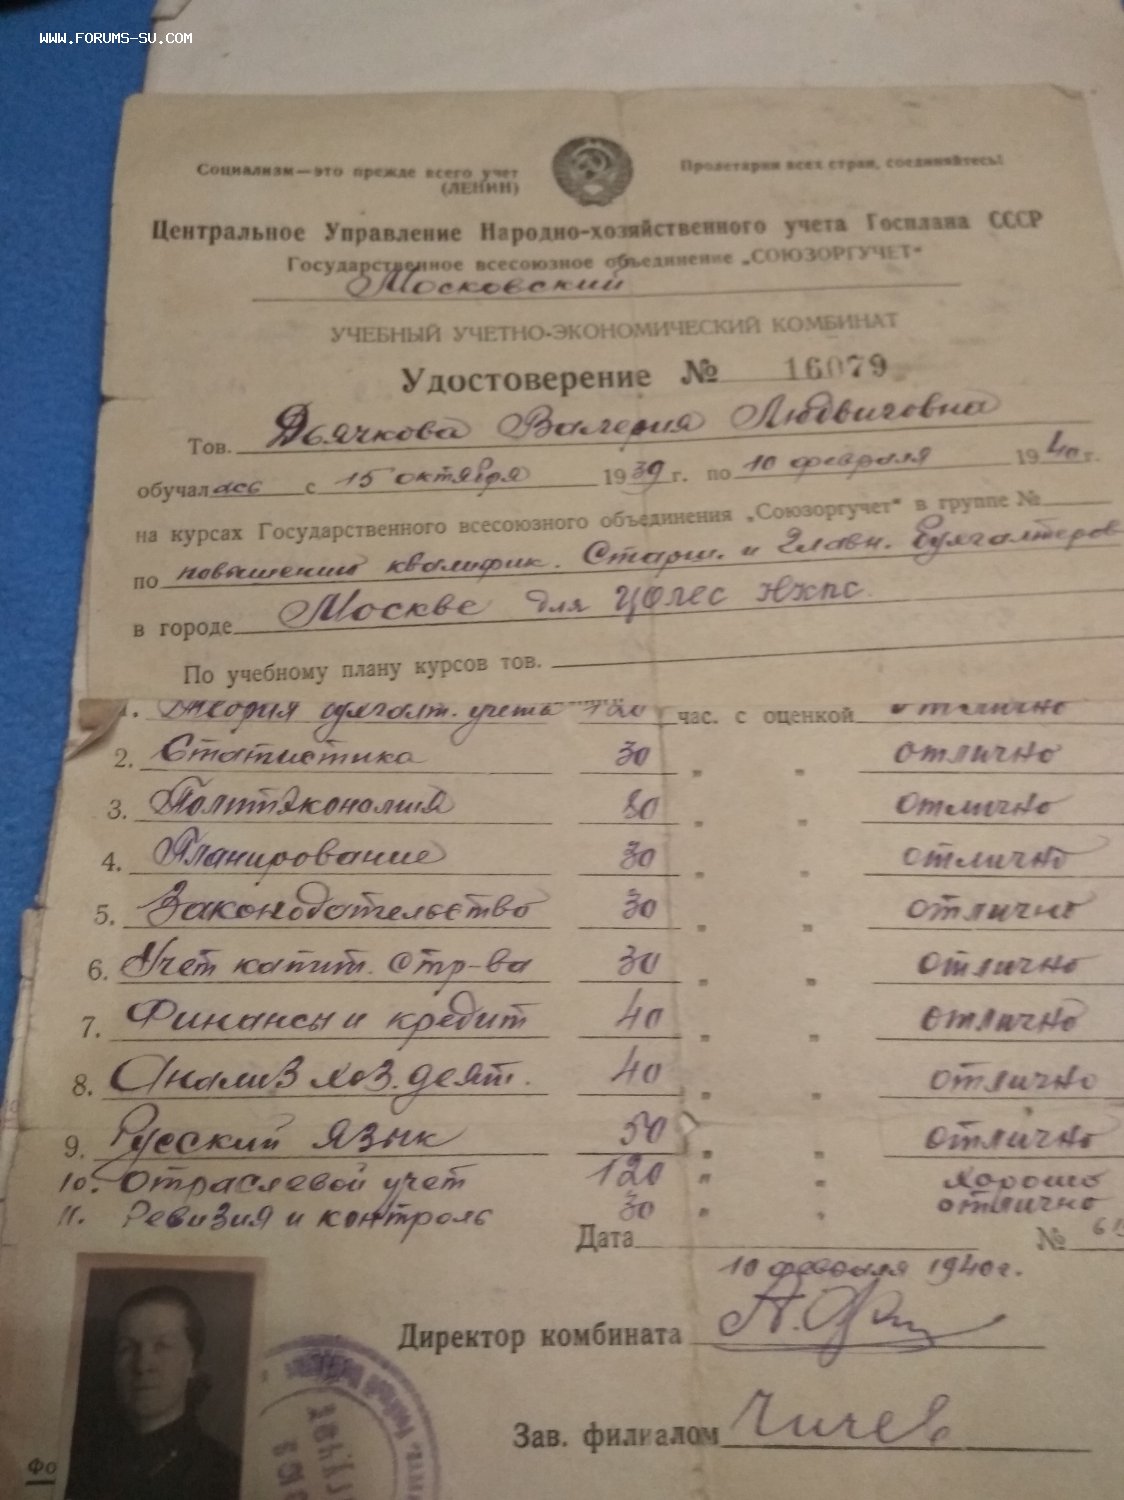 WWW.FORUMS-SU.COM
Социализм—это прежде всего учет
(ЛЕНИН)
Пролетарии всех стран, соединяйтесь!
Центральное Управление Народно-хозяйственного учета Госплана СССР
Государственное всесоюзное объединение „СОЮЗОРГУЧЕТ"
Московский
УЧЕБНЫЙ УЧЕТНО-ЭКОНОМИЧЕСКИЙ КОМБИНАТ
Удостоверение № 16079
Тов. Дьячкова Валерия Людвиговна
обучалась с 15 октября 1939 г. по 10 февраля 1940 г.
на курсах Государственного всесоюзного объединения „Союзоргучет" в группе №
по повышению квалифик. Старш. и Главн. бухгалтеров
в городе Москве для ЦОЛЕС НКПС
По учебному плану курсов тов.
1. Теория бухгалт. учета 120 час. с оценкой отлично
2. Статистика 30 „ „ отлично
3. Политэкономия 80 „ „ отлично
4. Планирование 30 „ „ отлично
5. Законодательство 30 „ „ отлично
6. Учет капит. стр-ва 30 „ „ отлично
7. Финансы и кредит 40 „ „ отлично
8. Анализ хоз. деят. 40 „ „ отлично
9. Русский язык 50 „ „ отлично
10. Отраслевой учет 120 „ „ хорошо
11. Ревизия и контроль 30 „ „ отлично
Дата №
10 февраля 1940 г.
Директор комбината
Зав. филиалом
Фо